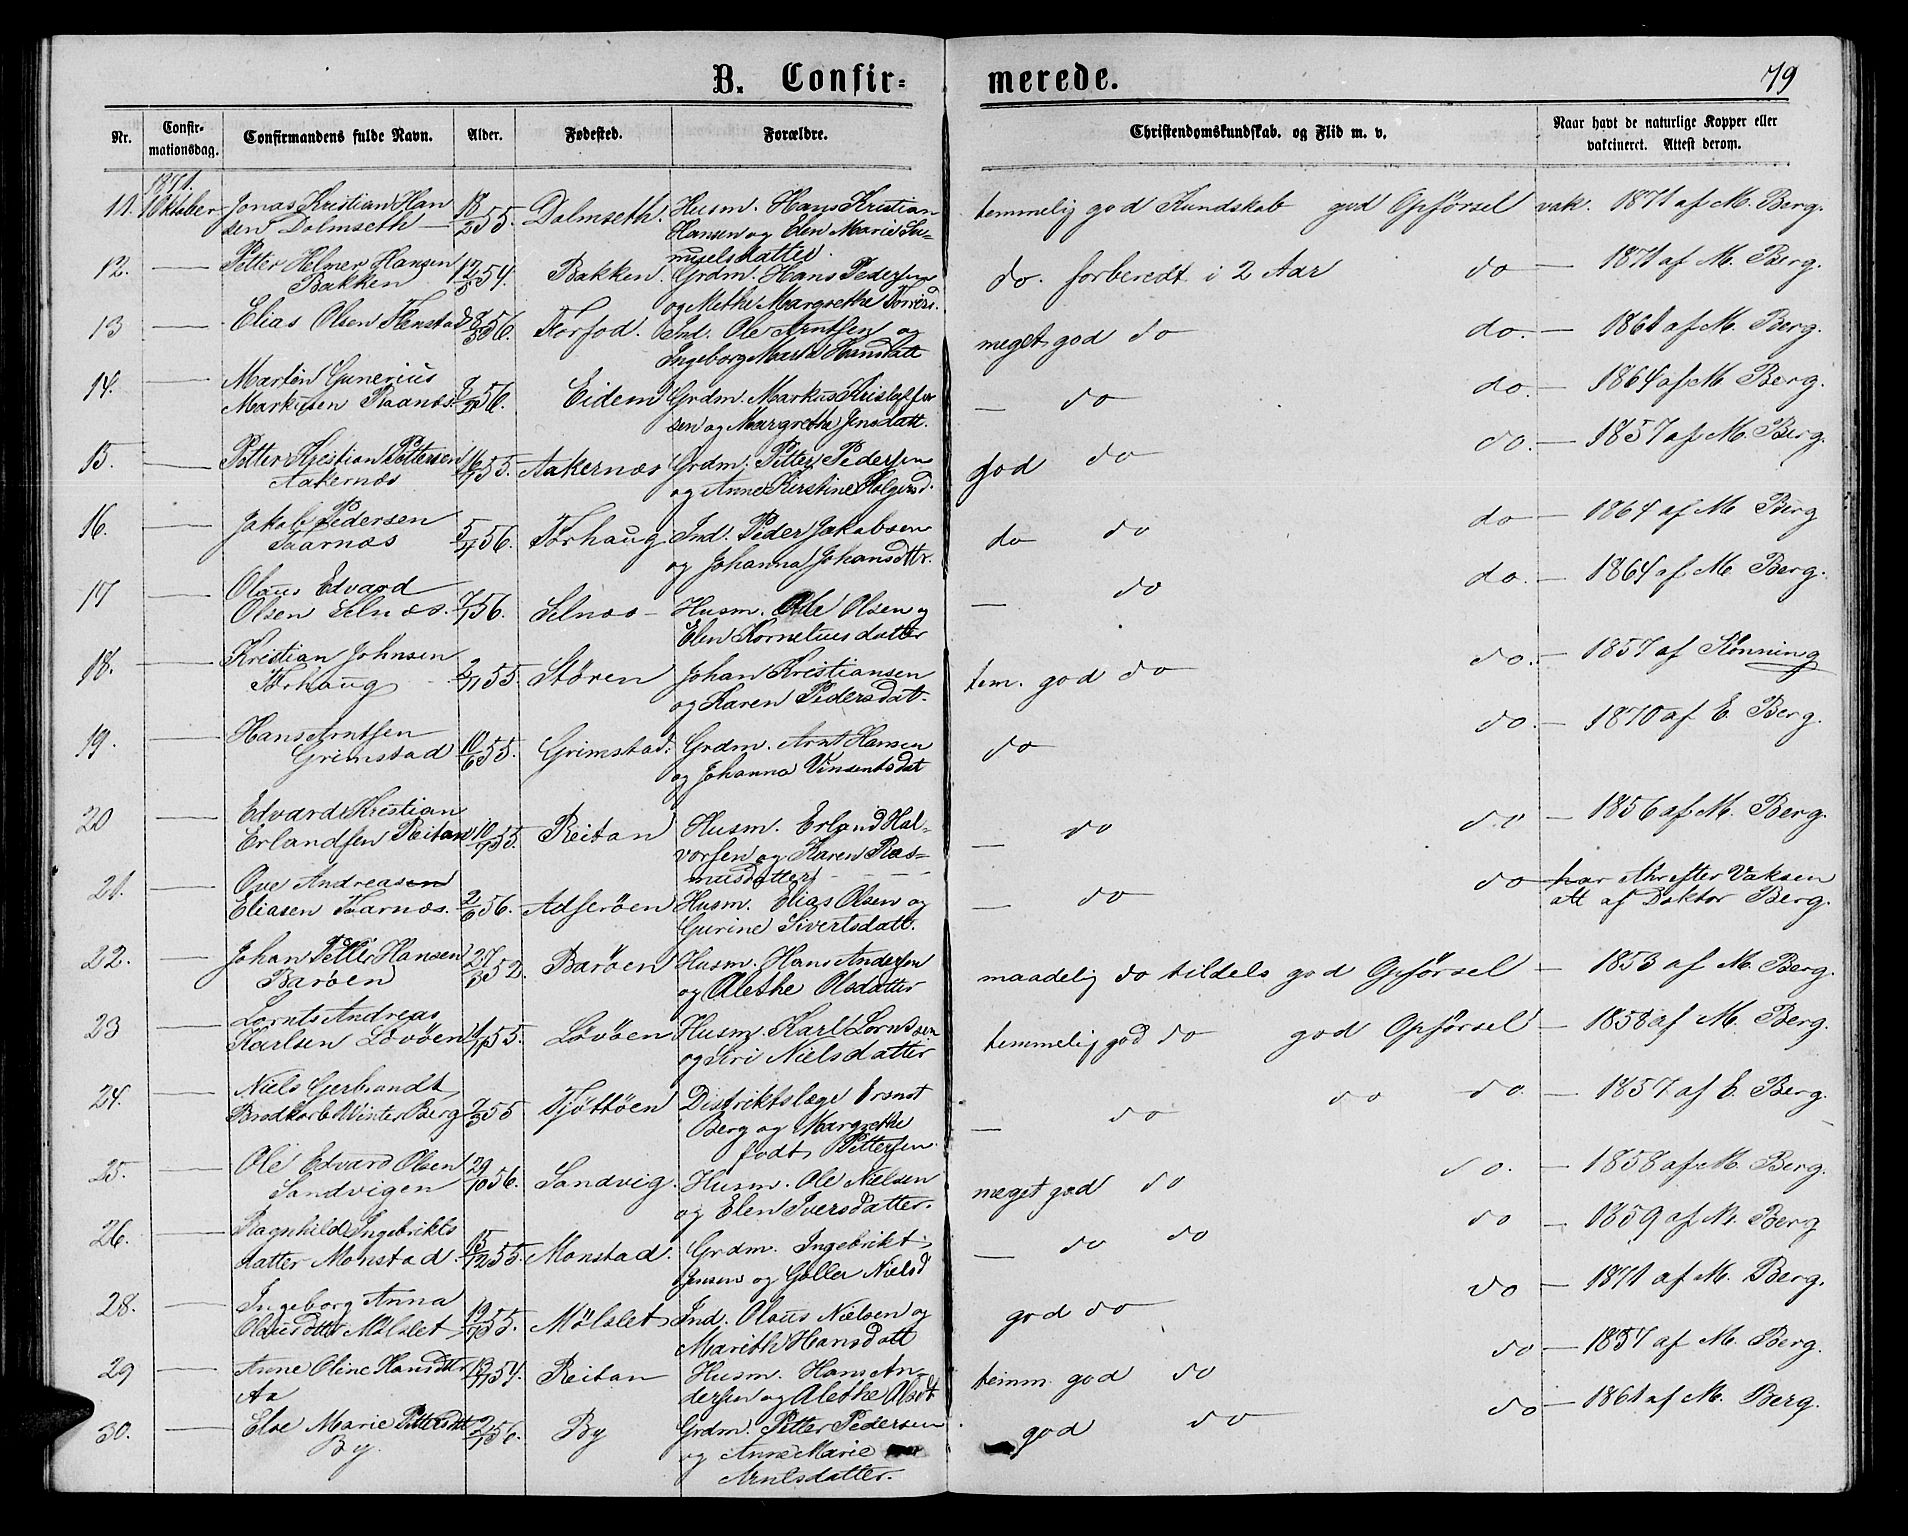 B. Confir-merede.
79
Nr.
Confir-mationsdag.
Confirmandens fulde Navn.
Alder.
Fødested.
Forældre.
Christendomskundskab. og Flid m. v.
Naar havt de naturlige Kopper eller
vakcineret. Attest derom.
1871.
11. 1 Oktober Jonas Kristian Han
sen Dalmseth — 18/2 55. Dalmseth. Husm. Hans Kristian
Hansen og Elen Marie
datter.
temmelig god Kundskab god Opførsel vak. 1871 af M. Berg.
12. — Petter Helmer Hansen
Bakken 12/5 54. Bakken. Grdm. Hans Pedersen
og Methe Margrethe
do. forberedt i 2 Aar do — 1871 af M. Berg.
13 — Elias Olsen Forfod. Ind. Ole Arntsen og
Ingeborg Marta Hansdatt
meget god do do. — 1861 af M. Berg.
14. — Martin Gunerius
Markusen 56. Eidem Grdm. Markus Kristoffer
sen og Margrethe Jensdatt.
— do do. — 1864 af M. Berg.
15. — Petter Kristian Pettersen
Aakernæs 55. Aakernæs Grdm. Petter Pedersen
og Anne Kirstine Holgersd.
god do do. — 1857 af M. Berg.
16. — Jakob Pedersen
5/4 56. Torhaug Ind. Peder Jakobsen
og Johanna Johansdtr.
do do do — 1864 af M. Berg
17 — Olaus Edvard
Olsen Selnæs. 56. Selnæs — Husm. Ole Olsen og
Elen Korneliusdatter
— do do. — 1864 af M. Berg.
18. — Kristian Johnsen
Torhaug 2/11 55. Støren Johan Kristiansen
og Karen Pedersdat.
tem. god do do. — 1857 af
19. — Hans Arntsen
Grimstad 10/6 55. Grimstad. Grdm. Arnt Hansen
og Johanna Vinsentsdat
do do. — 1870 af E. Berg.
20 — Edvard Kristian
Erlandsen Reitan 10/7 55. Reitan Husm. Erland Hal-
vorsen og Karen Ras-
musdatter
— do do — 1856 af M. Berg.
21. — Ove Andreasen
Eliasen 2/6 56. Husm. Elias Olsen og
Gurine Sivertsdatt.
— do do — har Vaksen
att af Doktor Berg.
22. — Johan Petter Hansen
Barøen 27/3 52. Barøen Husm. Hans Andersen
og Alethe Olsdatter
maadelig do tildels god Opførsel — 1853 af M. Berg.
23 — Lornts Andreas
Karlsen Løvøen 55. Løvøen Husm. Karl Lorntsen
og Siri Nielsdatter
temmelig god do god Opførsel — 1858 af M. Berg.
24. — Niels Gerbrandt
Brodkorb Winter Berg 55 Tjøttøen Distriktslæge Ernst
Berg og Margrethe
født Pettersen.
— do do do. — 1857 af E. Berg.
25. — Ole Edvard Olsen
Sandvigen 29/10 56. Sandvig. Husm. Ole Nielsen
og Elen Iversdatter.
meget god do do. — 1858 af M. Berg.
26. — Ragnhild Ingebrikts
datter Monstad. 15/12 55. Monstad. Grdm. Ingebrikt
Jensen og Goller Nielsd
— do do do — 1859 af M. Berg
28. — Ingeborg Anna
Olausdtter Mølslet 55. Mølslet Ind. Olaus Nielsen og
Marith Hansdatt
god do do — 1871 af M. Berg.
29 — Anne Oline Hansdttr
Aa 54. Reitan Husm. Hans An-
dersen og Alethe Olsdt
temm. god do do — 1857 af M. Berg.
30. — Else Marie Pettersdtt
By. 56. By Grdm. Petter Pedersen
og Anne Marie
Arntsdatter.
god do do — 1861 af M. Berg.